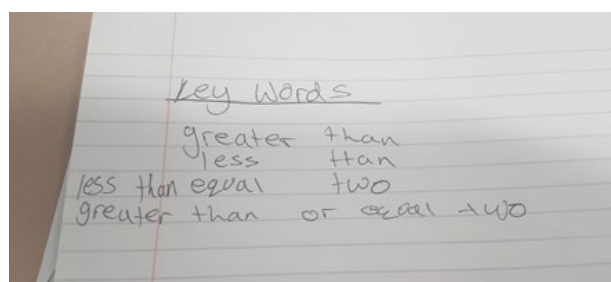 Key Words
greater than
less ttan
less than equal two
greater than or eqaal two